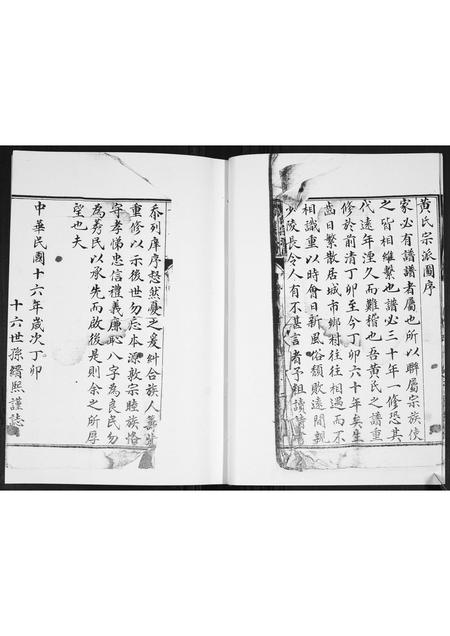 黃氏宗派圖序
家必有譜譜者屬也所以聯屬宗族使
之皆相維繫也譜必三十年一修恐其
代遠年湮久而難稽也吾黃氏之譜重
修於前清丁卯至今丁卯六十年矣生
齒日繁散居城市鄉村往往相遇而不
相識重以時會日新風俗頹敗遠間親
少陵長令人有不甚言者予粗讀
忝列庠序惄然憂之爰糾合族人
重修以示後世勿忘本源敦宗睦族恪
守孝悌忠信禮義廉恥八字為良民勿
為莠民以承先而啟後是則余之所厚
望也夫
中華民國十六年歲次丁卯
十六世孫縉熙謹誌